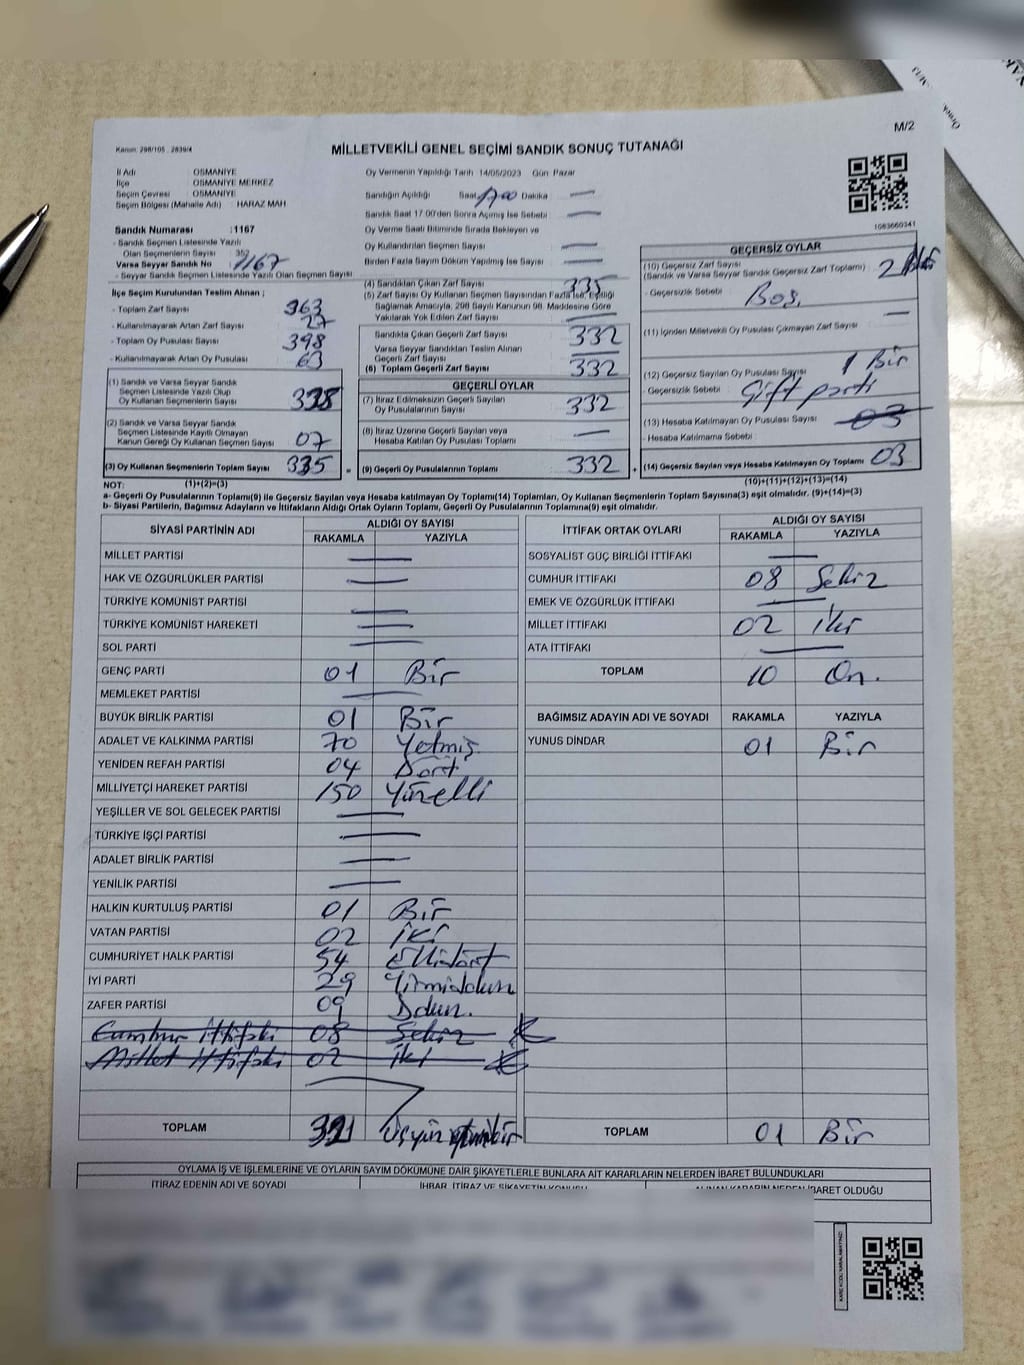 M/2
Kanun: 298/105, 2839/4
MİLLETVEKİLİ GENEL SEÇİMİ SANDIK SONUÇ TUTANAĞI
İl Adı OSMANİYE
İlçe OSMANİYE MERKEZ
Seçim Çevresi OSMANİYE
Seçim Bölgesi (Mahalle Adı) HARAZ MAH
Sandık Numarası :1167
- Sandık Seçmen Listesinde Yazılı
Olan Seçmenlerin Sayısı 352
Varsa Seyyar Sandık No 1167
- Seyyar Sandık Seçmen Listesinde Yazılı Olan Seçmen Sayısı
Oy Vermenin Yapıldığı Tarih 14/05/2023 Gün Pazar
Sandığın Açıldığı Saat 1700 Dakika —
Sandık Saat 17.00'den Sonra Açımış İse Sebebi —
Oy Verme Saati Bitiminde Sırada Bekleyen ve
Oy Kullandırılan Seçmen Sayısı —
Birden Fazla Sayım Döküm Yapılmış İse Sayısı —
1083660341
İlçe Seçim Kurulundan Teslim Alınan ;
- Toplam Zarf Sayısı 363
- Kullanılmayarak Artan Zarf Sayısı 27
- Toplam Oy Pusulası Sayısı 398
- Kullanılmayarak Artan Oy Pusulası 63
(1) Sandık ve Varsa Seyyar Sandık
Seçmen Listesinde Yazılı Olup
Oy Kullanan Seçmenlerin Sayısı
(2) Sandık ve Varsa Seyyar Sandık
Seçmen Listesinde Kayıtlı Olmayan
Kanun Gereği Oy Kullanan Seçmen Sayısı 07
(3) Oy Kullanan Seçmenlerin Toplam Sayısı 335
(4) Sandıktan Çıkan Zarf Sayısı 335
(5) Zarf Sayısı Oy Kullanan Seçmen Sayısından Fazla İse, Eşitliği
Sağlamak Amacıyla, 298 Sayılı Kanunun 98. Maddesine Göre
Yakılarak Yok Edilen Zarf Sayısı —
Sandıkta Çıkan Geçerli Zarf Sayısı 332
Varsa Seyyar Sandıktan Teslim Alınan
Geçerli Zarf Sayısı —
(6) Toplam Geçerli Zarf Sayısı 332
GEÇERLİ OYLAR
(7) İtiraz Edilmeksizin Geçerli Sayılan
Oy Pusulalarının Sayısı 332
(8) İtiraz Üzerine Geçerli Sayılan veya
Hesaba Katılan Oy Pusulası Toplamı —
= (9) Geçerli Oy Pusulalarının Toplamı 332
GEÇERSİZ OYLAR
(10) Geçersiz Zarf Sayısı
(Sandık ve Varsa Seyyar Sandık Geçersiz Zarf Toplamı) 2
- Geçersizlik Sebebi Boş.
(11) İçinden Milletvekili Oy Pusulası Çıkmayan Zarf Sayısı —
(12) Geçersiz Sayılan Oy Pusulası Sayısı 1 Bir
- Geçersizlik Sebebi Çift parti
(13) Hesaba Katılmayan Oy Sayısı 03
- Hesaba Katılmama Sebebi
+ (14) Geçersiz Sayılan veya Hesaba Katılmayan Oy Toplamı 03
NOT: (1)+(2)=(3)
(10)+(11)+(12)+(13)=(14)
a- Geçerli Oy Pusulalarının Toplamı(9) ile Geçersiz Sayılan veya Hesaba katılmayan Oy Toplamı(14) Toplamları, Oy Kullanan Seçmenlerin Toplam Sayısına(3) eşit olmalıdır. (9)+(14)=(3)
b- Siyasi Partilerin, Bağımsız Adayların ve İttifakların Aldığı Ortak Oyların Toplamı, Geçerli Oy Pusulalarının Toplamına(9) eşit olmalıdır.
SİYASİ PARTİNİN ADI ALDIĞI OY SAYISI
RAKAMLA YAZIYLA
MİLLET PARTİSİ —
HAK VE ÖZGÜRLÜKLER PARTİSİ —
TÜRKİYE KOMÜNİST PARTİSİ —
TÜRKİYE KOMÜNİST HAREKETİ —
SOL PARTİ —
GENÇ PARTİ 01 Bir
MEMLEKET PARTİSİ —
BÜYÜK BİRLİK PARTİSİ 01 Bir
ADALET VE KALKINMA PARTİSİ 70 Yetmiş
YENİDEN REFAH PARTİSİ 04 Dört
MİLLİYETÇİ HAREKET PARTİSİ 150 Yüzelli
YEŞİLLER VE SOL GELECEK PARTİSİ —
TÜRKİYE İŞÇİ PARTİSİ —
ADALET BİRLİK PARTİSİ —
YENİLİK PARTİSİ —
HALKIN KURTULUŞ PARTİSİ 01 Bir
VATAN PARTİSİ 02 İki
CUMHURİYET HALK PARTİSİ 54 Ellidört
İYİ PARTİ 29 Yirmidokuz
ZAFER PARTİSİ 09 Dokuz.
Cumhur İttifakı 08 Sekiz
Millet İttifakı 02 İki
TOPLAM 321
İTTİFAK ORTAK OYLARI ALDIĞI OY SAYISI
RAKAMLA YAZIYLA
SOSYALİST GÜÇ BİRLİĞİ İTTİFAKI —
CUMHUR İTTİFAKI 08 Sekiz
EMEK VE ÖZGÜRLÜK İTTİFAKI —
MİLLET İTTİFAKI 02 İki
ATA İTTİFAKI —
TOPLAM 10 On.
BAĞIMSIZ ADAYIN ADI VE SOYADI RAKAMLA YAZIYLA
YUNUS DİNDAR 01 Bir
TOPLAM 01 Bir
OYLAMA İŞ VE İŞLEMLERİNE VE OYLARIN SAYIM DÖKÜMÜNE DAİR ŞİKAYETLERLE BUNLARA AİT KARARLARIN NELERDEN İBARET BULUNDUKLARI
İTİRAZ EDENİN ADI VE SOYADI İHBAR, İTİRAZ VE ŞİKAYETİN KONUSU ALINAN KARARIN NEDEN İBARET OLDUĞU